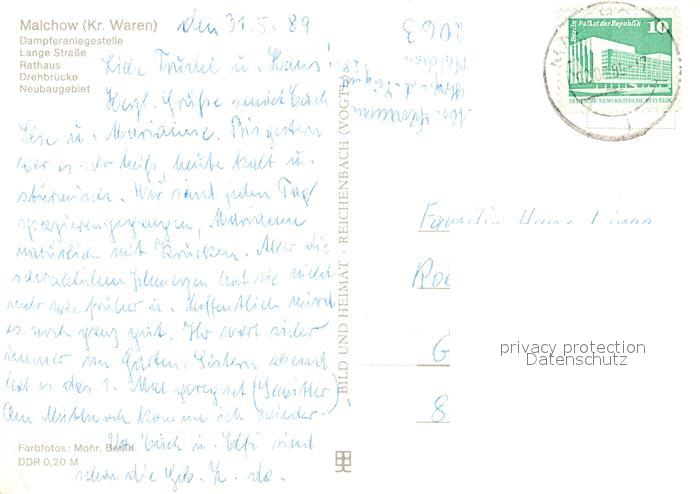 Malchow (Kr. Waren)
Dampferanlegestelle
Lange Straße
Rathaus
Drehbrücke
Neubaugebiet
den 31.5.89
Liebe Trudel u. Hans!
Herzl. Grüße sendet Euch
Ilse u. Marianne. Bis gestern
war es sehr heiß, heute kalt u.
stürmisch. Wir sind jeden Tag
spazierengegangen, Marianne
natürlich mit Krücken. Aber die
schrecklichen Schmerzen hat sie nicht
mehr wie früher u. hoffentlich wird
es noch ganz gut. Ihr wart sicher
immer im Garten. Gestern abend
hat es das 1. Mal geregnet (Gewitter)!
Am Mittwoch komme ich wieder.
Euch u. Elfi sind
schon die Geb. K. da.
Farbfotos: Mohr, Berlin
DDR 0,20 M
BILD UND HEIMAT · REICHENBACH (VOGTL)
2063
Malchow
Palast der Republik
10
DEUTSCHE DEMOKRATISCHE REPUBLIK
Familie Hans
G
8
privacy protection
Datenschutz